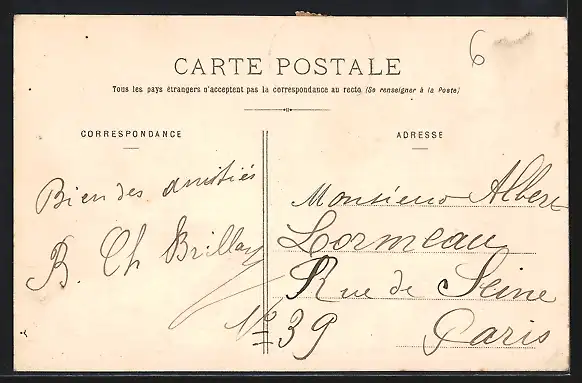 6
CARTE POSTALE
Tous les pays étrangers n'acceptent pas la correspondance au recto (Se renseigner à la Poste)
CORRESPONDANCE
Bien des amitiés
B. Ch Brillay
ADRESSE
Monsieur Albert
Lormeau
Rue de Seine
No 39 Paris